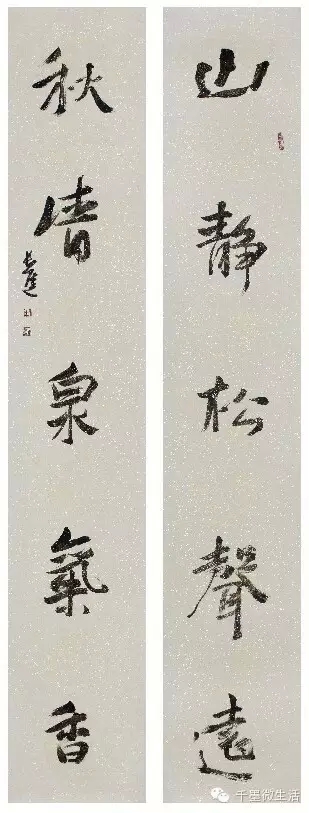 山静松聲遠
秋清泉氣香
千墨微生活